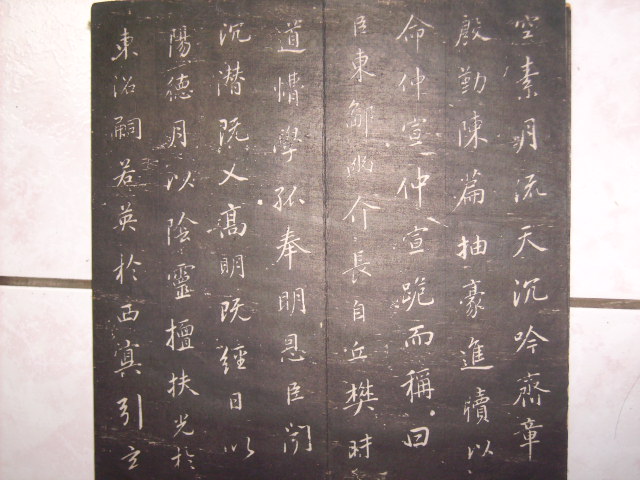 空素月流天沉吟齋章
殷勤陳篇抽豪進牘以
命仲宣仲宣跪而稱曰
臣東鄙幽介長自丘樊昧
道懵學孤奉明恩臣聞
沉潛既义高明既經日以
陽德月以陰靈擅扶光於
東沼嗣若英於西冥引玄